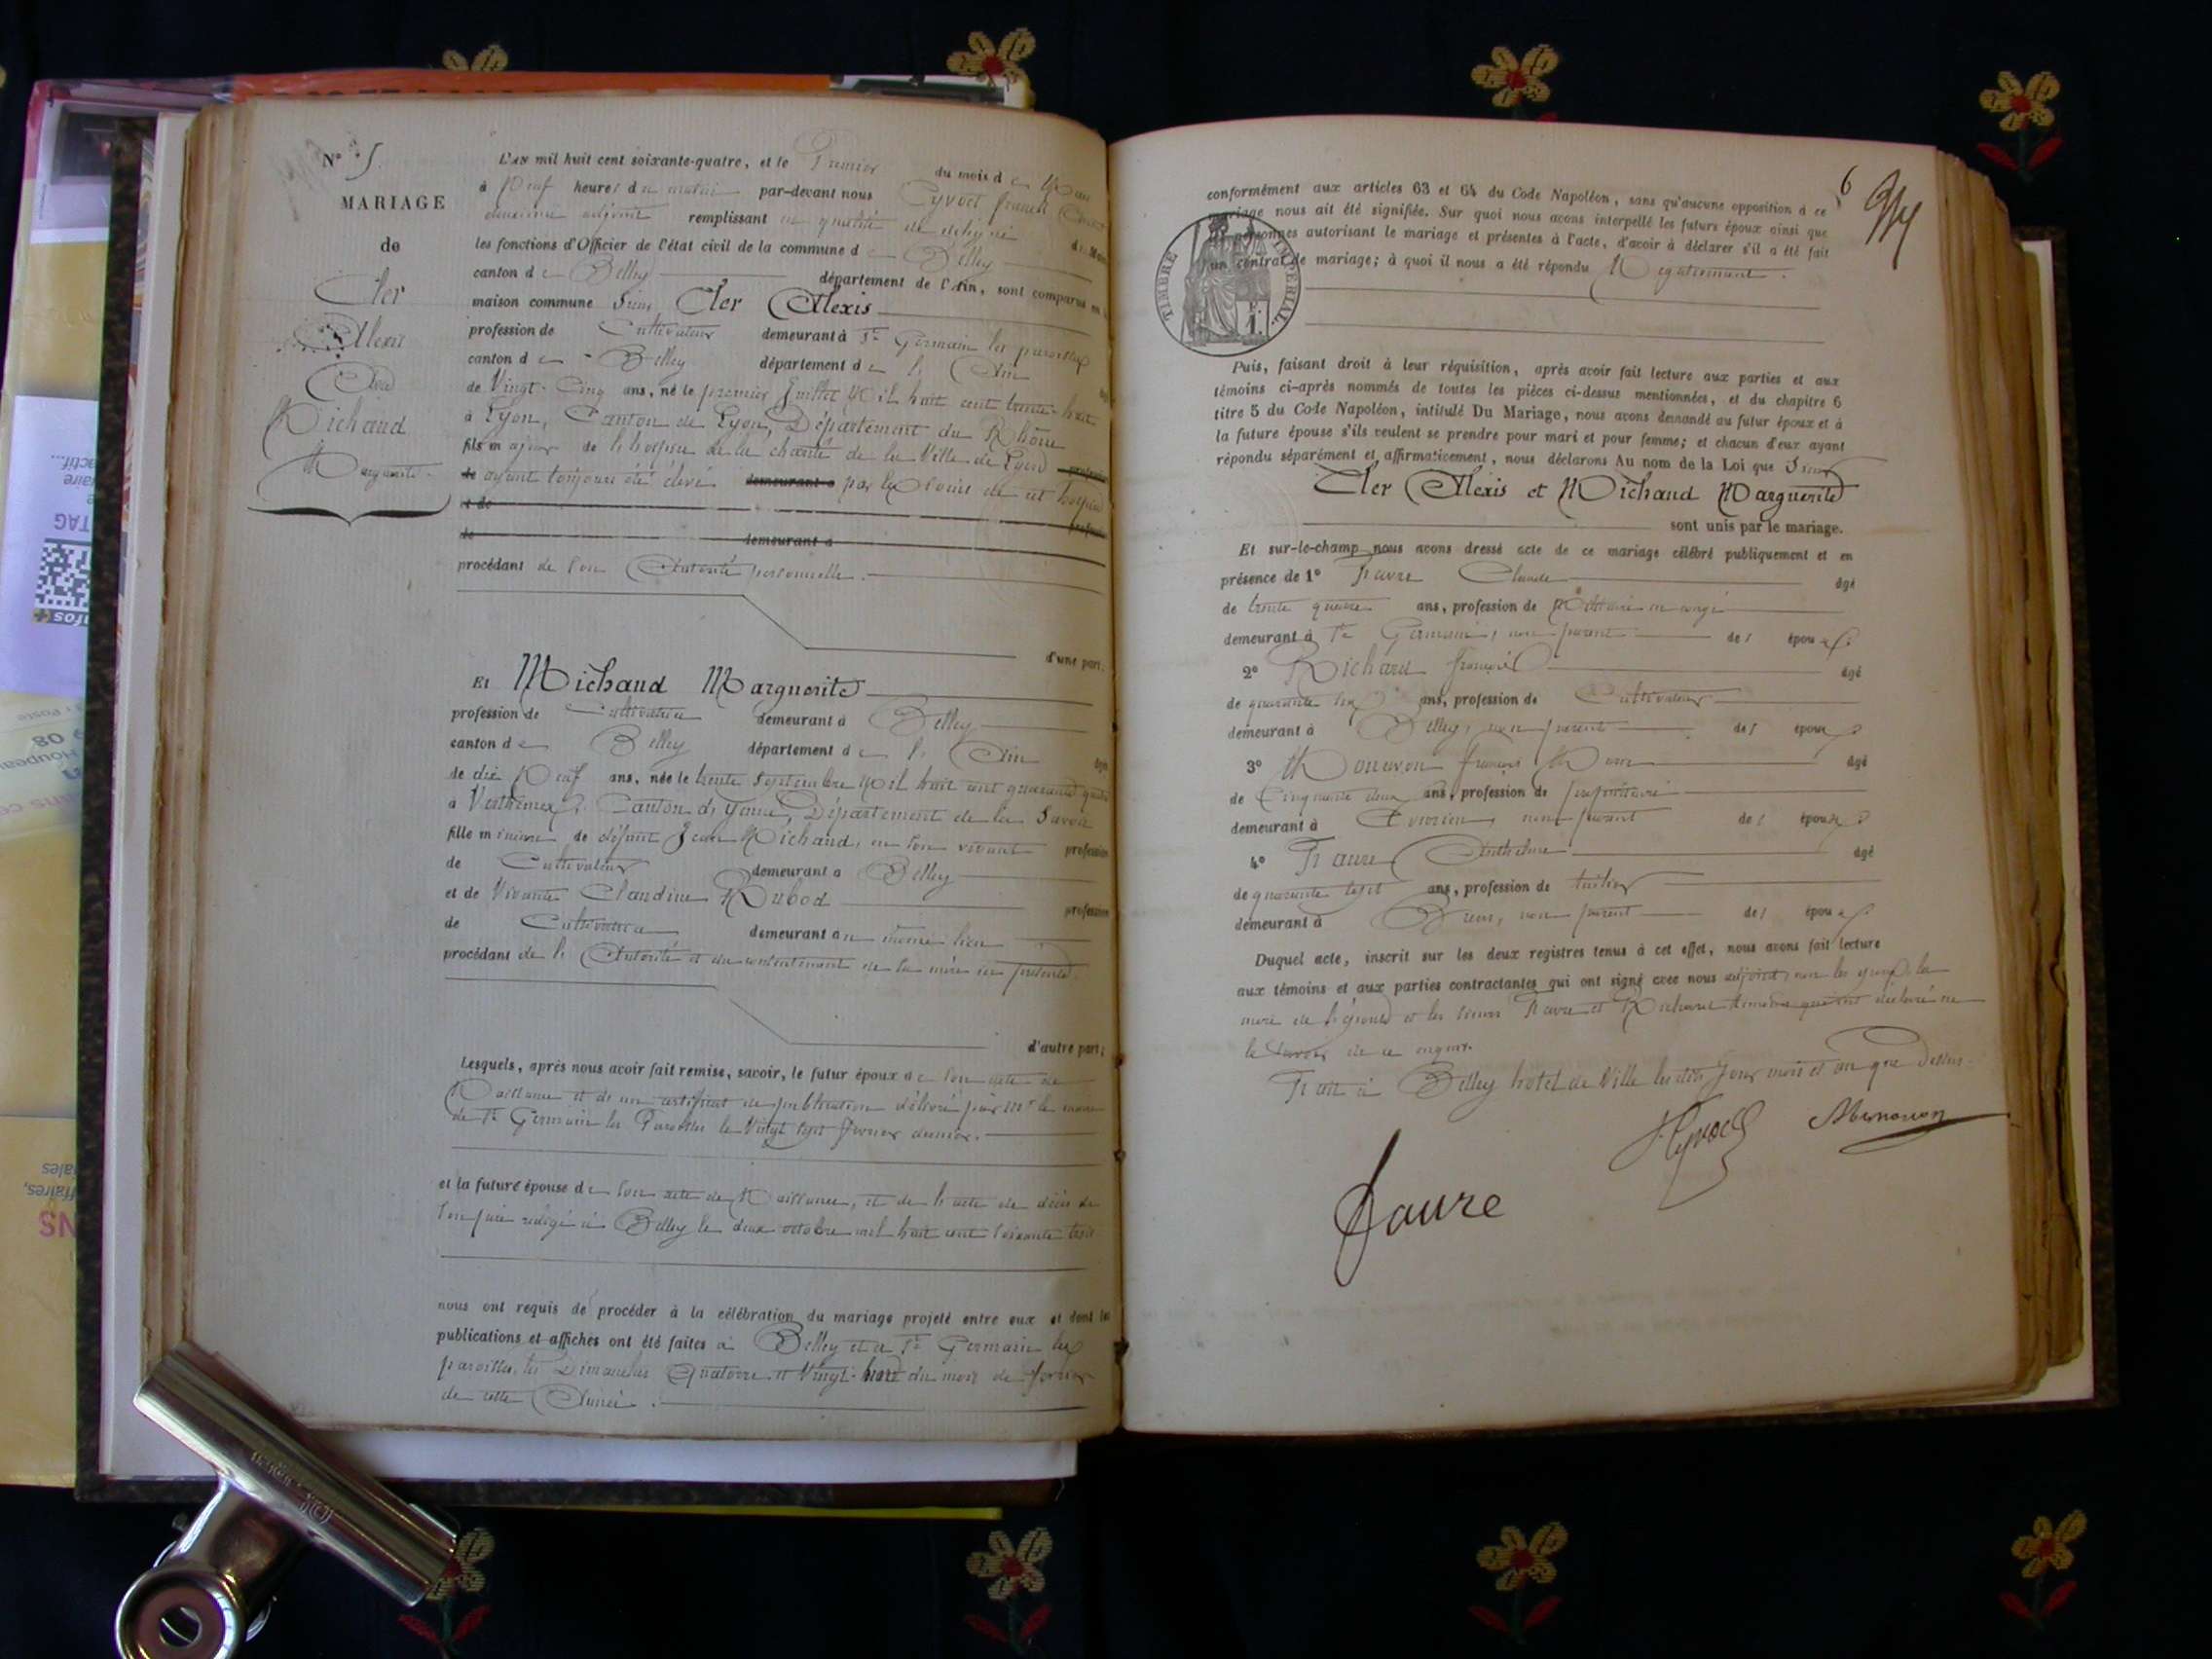 N° 5
MARIAGE
de
Cler
Alexis
Et
Michaud
Marguerite
L'AN mil huit cent soixante-quatre, et le Premier du mois de Mars
à Neuf heures du matin par-devant nous Cyvoct
deuxième adjoint remplissant en qualité de délégué du Maire
les fonctions d'Officier de l'état civil de la commune de Belley
canton de Belley département de l'Ain, sont comparus en la
maison commune Sieur Cler Alexis
profession de Cultivateur demeurant à St Germain les paroisses
canton de Belley département de l'Ain
de Vingt-Cinq ans, né le premier Juillet Mil huit cent trente-huit
à Lyon, Canton de Lyon, Département du Rhône
fils majeur de l'hospice de la charité de la Ville de Lyon profession
de ayant toujours été élevé demeurant à par les soins de cet hospice
et de profession
de demeurant à
procédant de son Autorité personnelle.
d'une part.
Et Michaud Marguerite
profession de Cultivatrice demeurant à Belley
canton de Belley département de l'Ain âgée
de dix Neuf ans, née le trente Septembre Mil huit cent quarante quatre
à Verthemex, Canton d'Yenne, Département de la Savoie
fille mineure de défunt Jean Michaud, en son vivant profession
de Cultivateur demeurant à Belley
et de Vivante Claudine Dubod profession
de Cultivatrice demeurant au même lieu
procédant de l'Autorité et du consentement de sa mère ici présente.
d'autre part;
Lesquels, après nous avoir fait remise, savoir, le futur époux de son acte de
Naissance et de un certificat de publication délivré par Mr le maire
de St Germain les Paroisses le Vingt sept février dernier.
et la future épouse de son acte de Naissance, et de l'acte de décès de
son père rédigé à Belley le deux octobre mil huit cent soixante trois
nous ont requis de procéder à la célébration du mariage projeté entre eux et dont les
publications et affiches ont été faites à Belley et à St Germain les
paroisses, les Dimanches Quatorze et Vingt-huit du mois de février
de cette Année.
6
conformément aux articles 63 et 64 du Code Napoléon, sans qu'aucune opposition à ce
mariage nous ait été signifiée. Sur quoi nous avons interpellé les futurs époux ainsi que
les personnes autorisant le mariage et présentes à l'acte, d'avoir à déclarer s'il a été fait
un contrat de mariage; à quoi il nous a été répondu Négativement.
TIMBRE IMPÉRIAL.
Puis, faisant droit à leur réquisition, après avoir fait lecture aux parties et aux
témoins ci-après nommés de toutes les pièces ci-dessus mentionnées, et du chapitre 6
titre 5 du Code Napoléon, intitulé Du Mariage, nous avons demandé au futur époux et à
la future épouse s'ils veulent se prendre pour mari et pour femme; et chacun d'eux ayant
répondu séparément et affirmativement, nous déclarons Au nom de la Loi que Sieur
Cler Alexis et Michaud Marguerite
sont unis par le mariage.
Et sur-le-champ nous avons dressé acte de ce mariage célébré publiquement et en
présence de 1° Favre Claude âgé
de trente quatre ans, profession de Militaire en congé
demeurant à St Germain, non parent des époux.
2° Richard françois âgé
de quarante six ans, profession de Cultivateur
demeurant à Belley, non parent des époux
3° Monavon françois âgé
de Cinquante deux ans, profession de propriétaire
demeurant à non parent des époux
4° Faure Anthelme âgé
de quarante sept ans, profession de tuilier
demeurant à Brens, non parent des époux.
Duquel acte, inscrit sur les deux registres tenus à cet effet, nous avons fait lecture
aux témoins et aux parties contractantes qui ont signé avec nous adjoint, non les époux, la
mère de l'épouse et les sieurs Favre et Richard témoins qui ont déclaré ne
le savoir de ce enquis.
Fait à Belley hôtel de Ville les dits jour mois et an que dessus.
Cyvoct
Monavon
faure